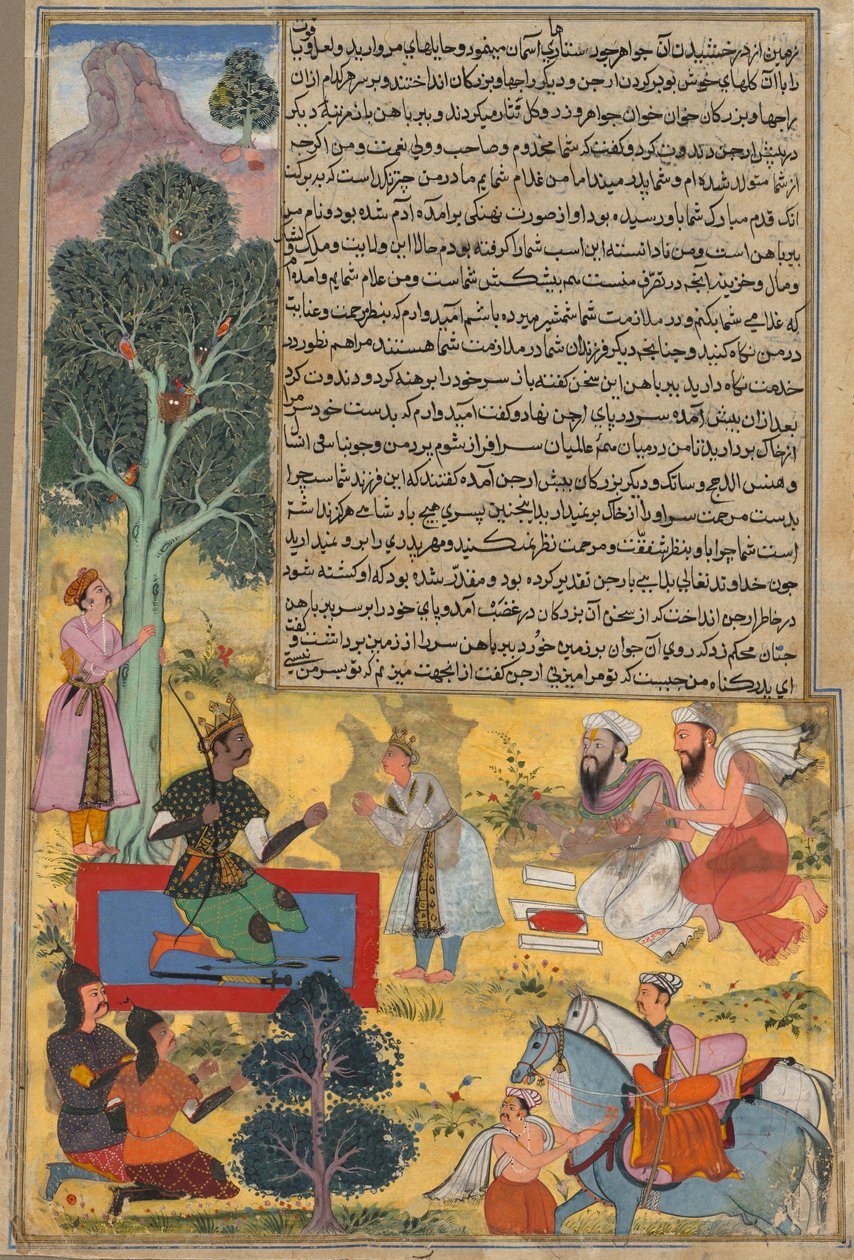 زمین از درخشیدن آن جواهر چون ستارهای آسمان مینمود و حایلهای مروارید و لعل و یاقوت
را با آن کلهای خوش بو در کردن ارجن و دیکر راجها و بزرکان انداختند و بر سر هر کدام ازان
راجها و بزرکان خوان خوان جواهر و زر و کل نثار میکردند و ببرباهن باز مرتبه دیکر
در پیش ارجن دندوت کرد و کفت که شما مخدوم و صاحب و ولی نعمت و من اکرچه
از شما متولد شده ام و شما پدر میند اما من غلام شمایم مادر من چترنکدا است که ببرکت
انک قدم مبارک شما باو رسیده بود او از صورت نهنکی برآمده آدم شده بود و نام من
ببرباهن است و من نادانسته این اسب شما را کرفته بودم حالا این ولایت و ملک و لشکر
و مال و خزینه آنچه در تصرف منست همه پیشکش شماست و من غلام شمایم و آمده ام
که غلامی شما بکنم و در ملازمت شما شمشیر میزده باشم امیدوارم که بنظر مرحمت و عنایت
در من نکاه کنید و چنانچه دیکر فرزندان شما در ملازمت شما هستند مرا هم بطور در
خدمت نکاه دارید ببرباهن این سخن کفته باز سر خود را برهنه کرد و دندوت کرد
بعد ازان پیش آمده سر در پای ارجن نهاد و کفت امیدوارم که بدست خود سر مرا
از خاک بردارید تا من در میان همه عالمیان سرافراز شوم پردمن و جوبناسو در این اثنا
و هنس الدهج و ساتک و دیکر بزرکان پیش ارجن آمده کفتند که این فرزند شماست چرا
بدست مرحمت سر او را از خاک بر نمیدارید اینچنین پسری هیچ پادشاهی هرکز نداشته
است شما چرا باو بنظر شفقت و مرحمت نظر نمیکنید و مهر پدری را برو نمیدارید
چون خداوند تعالی بلایی بارجن تقدیر کرده بود و مقدّر شده بود که او کشته شود
در خاطر ارجن انداخت که از سخن آن بزرکان در غضب آمد و پای خود را بر سر ببرباهن
چنان محکم زد که روی آن جوان بر زمین خورد ببرباهن سر را از زمین برداشت و کفت
ای پدر کناه من چیست که تو مرا میزنی ارجن کفت از انجهت میزنم که تو پسر من نیستی